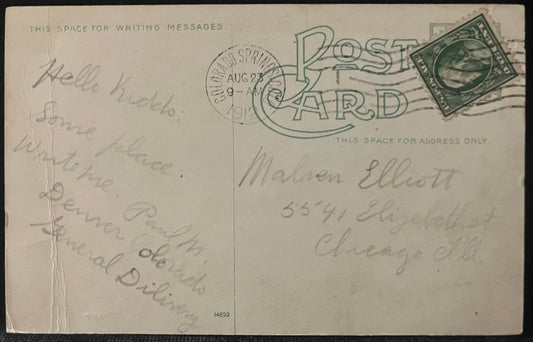 THIS SPACE FOR WRITING MESSAGES
POST CARD
COLORADO SPRINGS, COLO.
AUG 23
9 - AM
191
THIS SPACE FOR ADDRESS ONLY
Hello Kiddo.
Some place.
Write me. Paul M.
Denver Colorado
General Dilivery
Elliott
5541 Elizabeth st
Chicago Ill.
14692